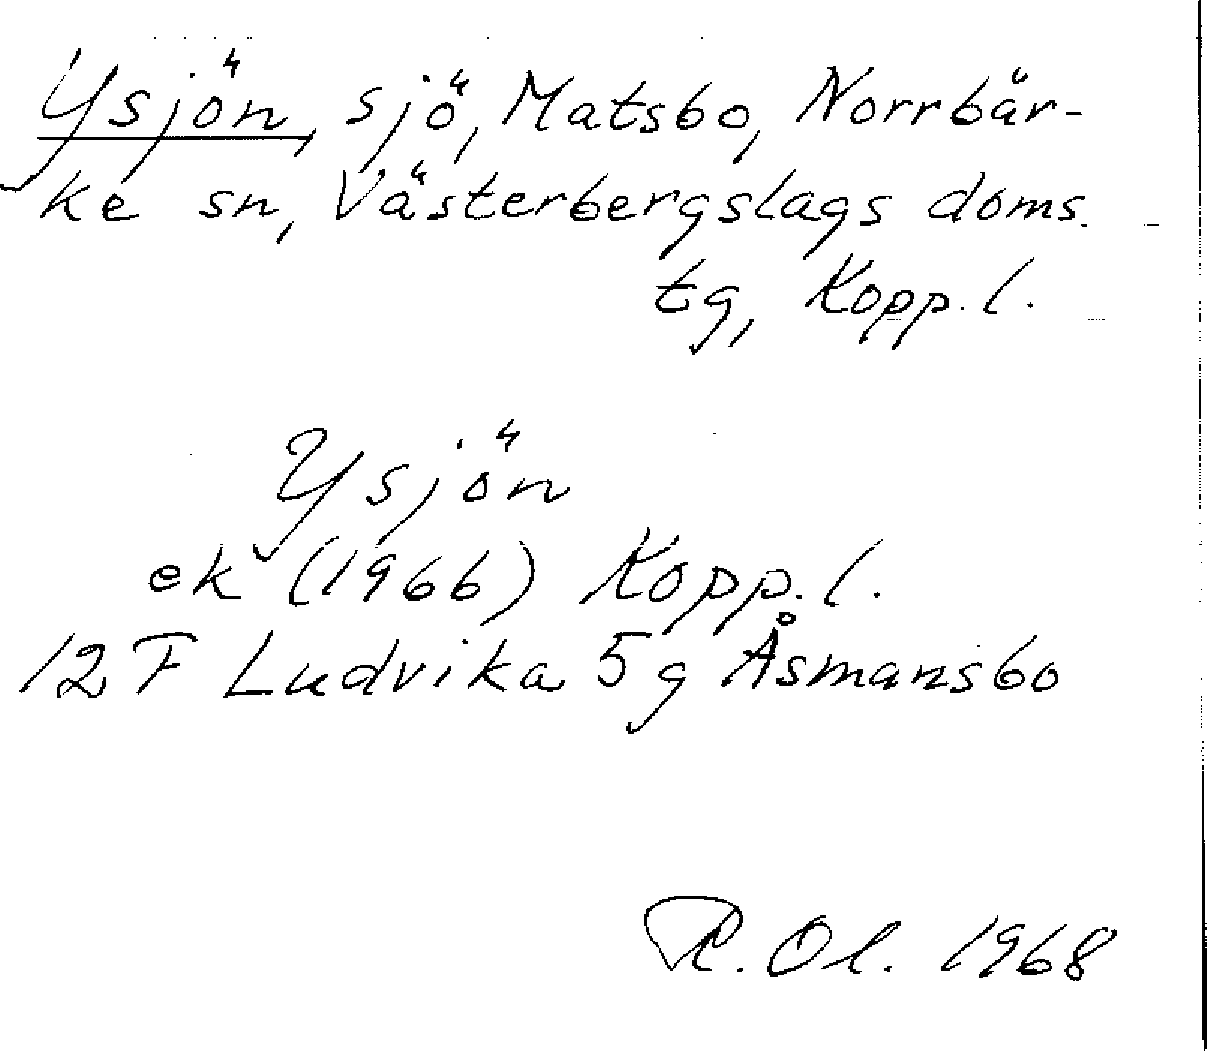 Ysjön, sjö, Matsbo, Norrbär-
ke sn, Västerbergslags doms.
tg, Kopp. l.
Ysjön
ek (1966) Kopp. l.
12 F Ludvika 5 g Åsmansbo
R. Ol. 1968